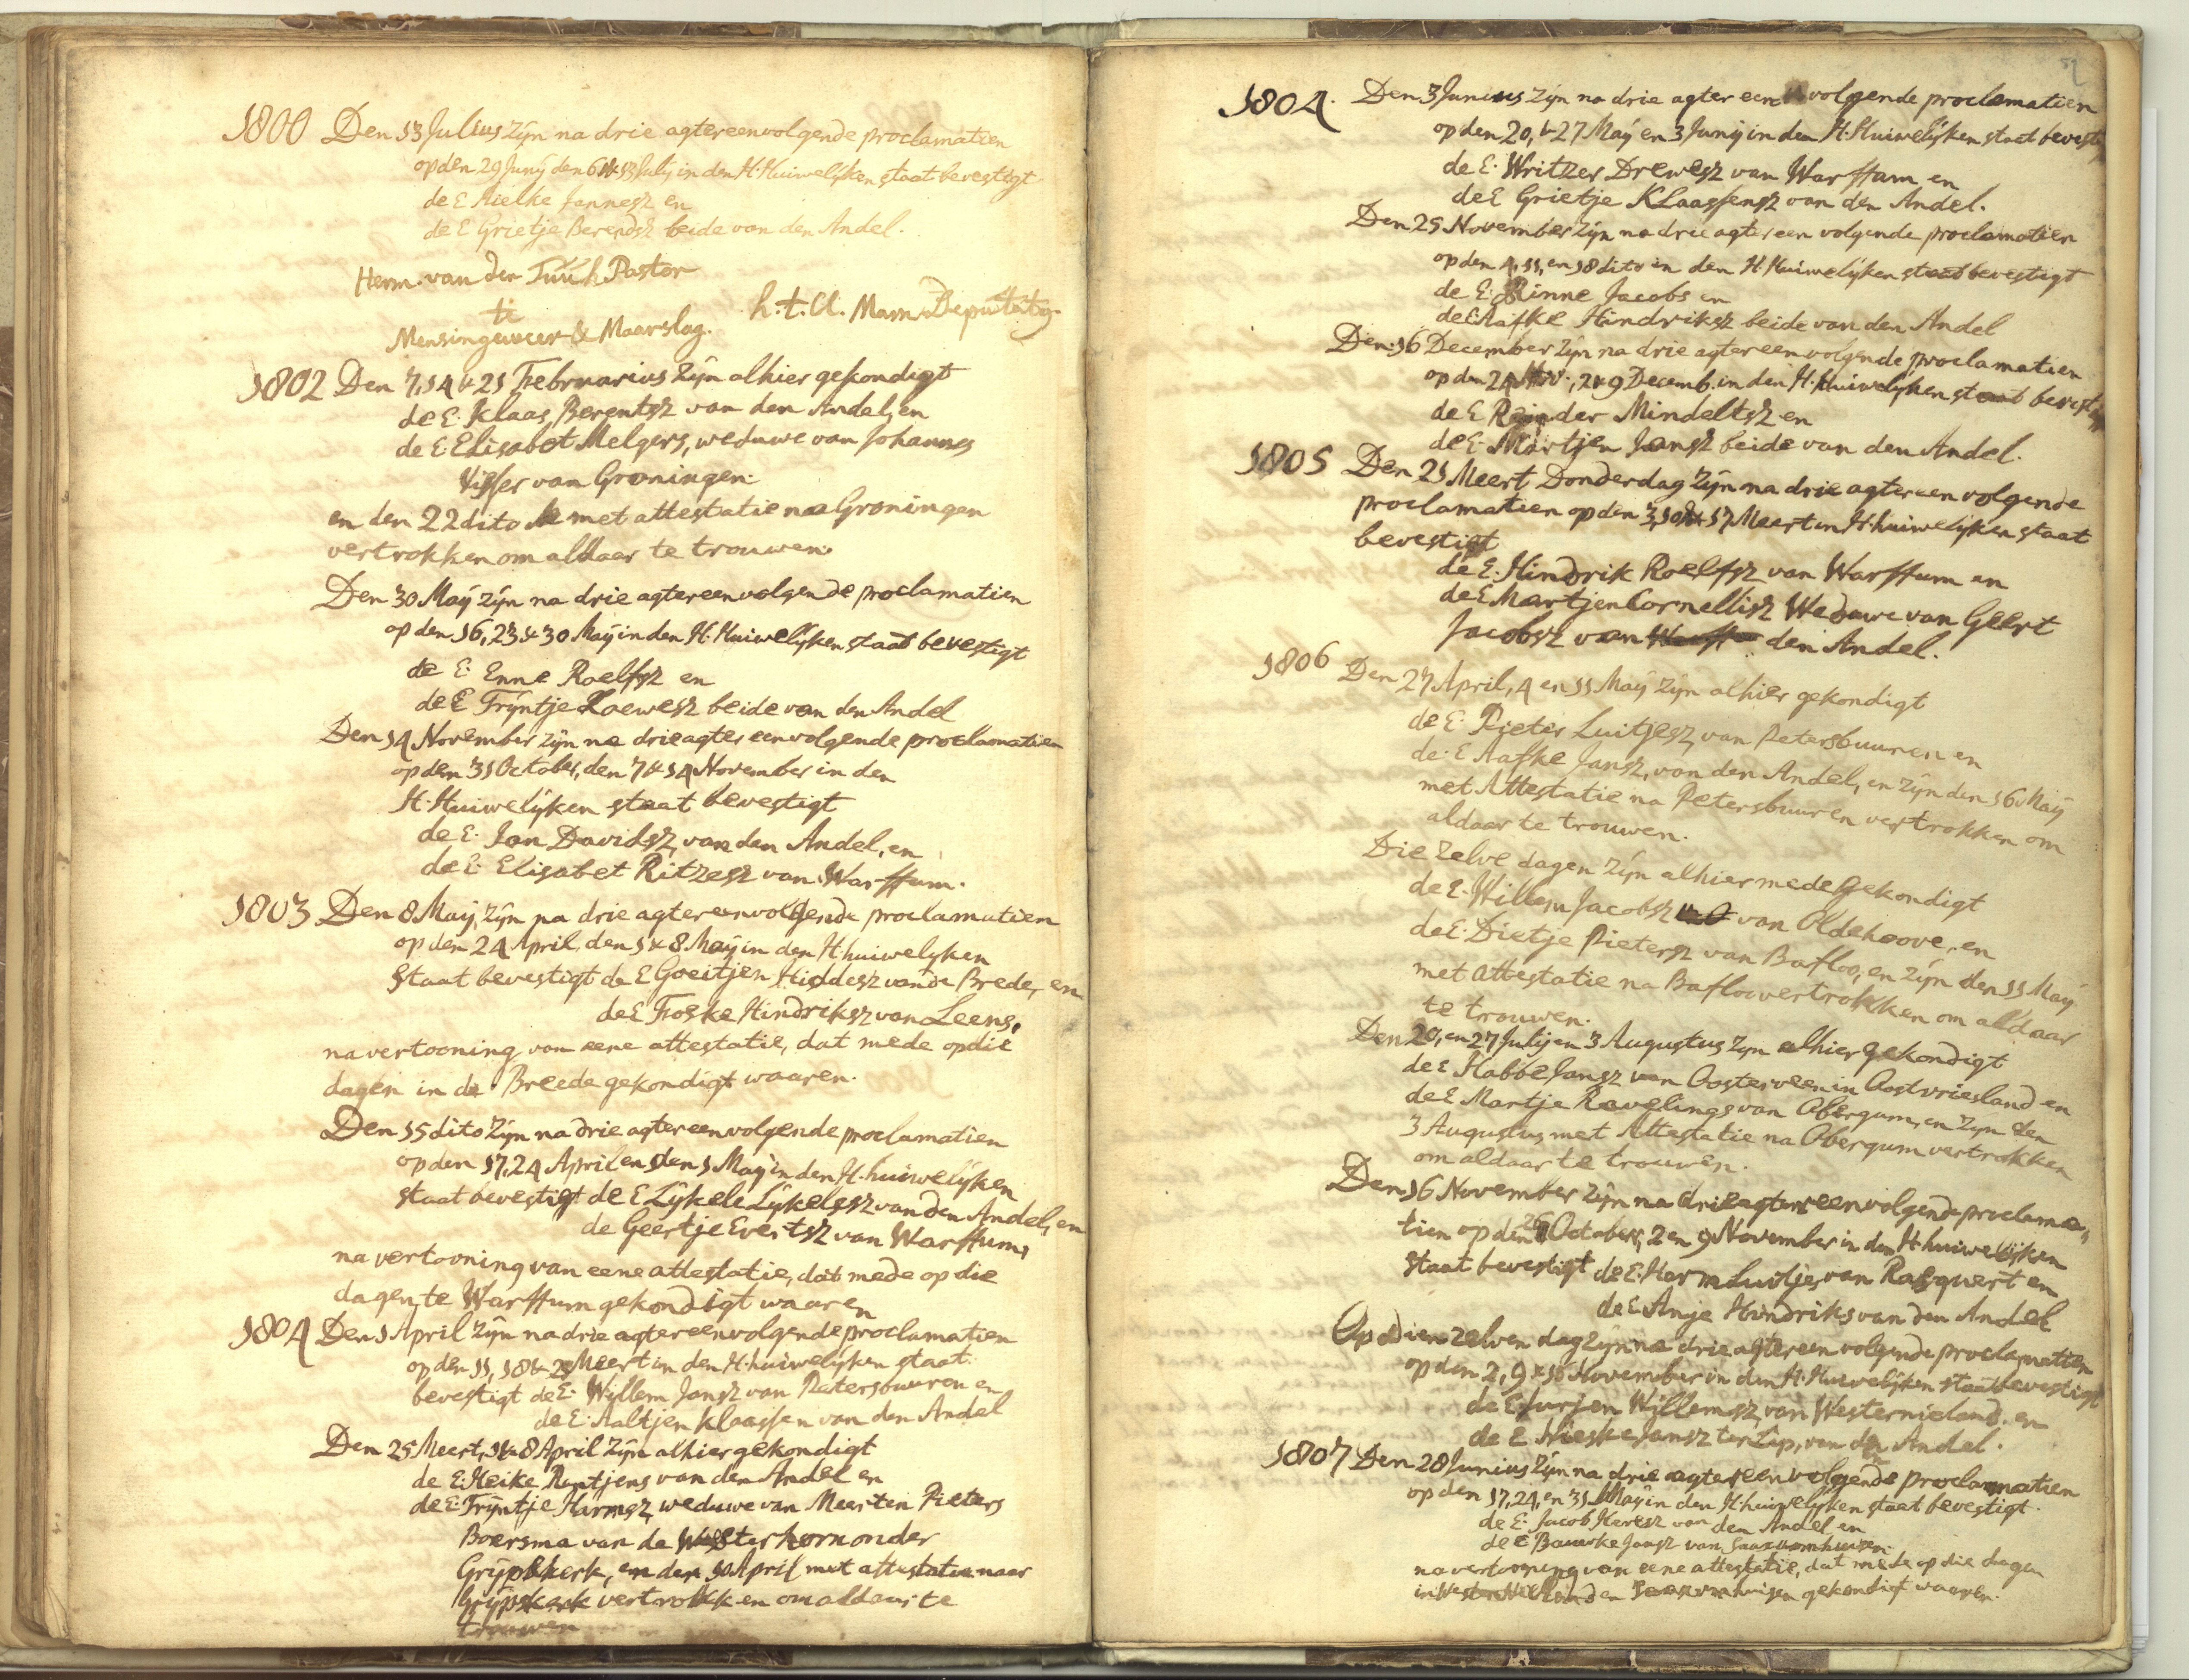 1800 Den 13 Julius zijn na drie agtereenvolgende proclamatien
op den 29 Junij den 6 & 13 July in den H. Huiwelijken staat bevestigt
de E Aielke Jannesz en
de E Grietje Berendsz beide van den Andel.
Herm. van der Tuuk Pastor
te
Mensingeweer & Maarslag. h. t. Cl. Marn. Deputatg.
1802 Den 7, 14 & 21 Februarius zijn alhier gekondigt
de E. Klaas Berentsz van den Andel, en
de E. Elisabet Melgers, weduwe van Johannes
Visser van Groningen.
en den 22 dito met attestatie na Groningen
vertrokken om aldaar te trouwen.
Den 30 Maij zijn na drie agtereenvolgende proclamatien
op den 16, 23 & 30 Maij in den H. Huiwelijken staat bevestigt
de E. Enne Roelfsz en
de E Trijntje Loewesz beide van den Andel
Den 14 November zijn na drie agter eenvolgende proclamatien
op den 31 October, den 7 & 14 November in den
H. Huiwelijken staat bevestigt
de E. Jan Davidsz van den Andel, en
de E. Elisabet Ritzesz van Warffum.
1803 Den 8 Maij, zijn na drie agtereenvolgende proclamatien
op den 24 April, den 1 & 8 Maij in den H. huiwelyken
staat bevestigt de E Goeitjen Hiddesz van de Brede, en
de E Foske Hindriksz van Leens,
na vertooning van eene attestatie, dat mede op die
dagen in de Breede gekondigt waaren.
Den 15 dito zijn na drie agtereenvolgende proclamatien
op den 17, 24 April en den 1 Maij in den H. huiwelijken
staat bevestigt de E Lijkele Lijkelesz van den Andel, en
de Geertje Evertsz van Warffum,
na vertooning van eene attestatie, dat mede op die
dagen, te Warffum gekondigt waaren
1804 Den 1 April zijn na drie agtereenvolgende proclamatien
op den 11, 18 & 25 Meert in den H. huiwelijken staat
bevestigt de E. Willem Jansz van Pietersbuuren en
de E. Aaltjen Klaassen van den Andel
Den 25 Meert, 1 & 8 April zijn alhier gekondigt
de E. Heike Rentjens van den Andel en
de E. Trijntje Harmsz, weduwe van Meerten Pieters
Boersma van de Westerhorn onder
Grijpskerk, en den 10 April met attestatie naar
Grijpskerk vertrokken om aldaar te
trouwen
1804. Den 3 Junius zijn na drie agter een volgende proclamatien
op den 20, & 27 Maij en 3 Junij in den H. Huiwelijken staat bevestigt
de E. Writzer Drewesz van Warffum en
de E Grietje Klaassensz van den Andel.
Den 25 November zijn na drie agtereen volgende proclamatien
op den 4, 11, en 18 dito in den H. Huiwelijken staat bevestigt
de E. Rinne Jacobs en
de E Aafke Hindriksz beide van den Andel
Den 16 December zijn na drie agtereenvolgende proclamatien
op den 24 Nov., 2 & 9 Decemb. in den H. Huiwelijken staat bevestigt
de E Reinder Mindeltsz en
de E. Martjen Jansz beide van den Andel.
1805 Den 21 Meert Donderdag zijn na drie agtereen volgende
proclamatien op den 3, 10 & 17 Meert in H. huiwelijken staat
bevestigt
de E. Hindrik Roelfsz van Warffum en
de E Martjen Cornellisz Weduwe van Geert
Jacobsz van den Andel.
1806 Den 27 April, 4 en 11 Maij zijn alhier gekondigt
de E. Pieter Luitjesz van Petersbuuren en
de E Aafke Jansz, van den Andel, en zijn den 16 Maij
met Attestatie na Petersbuuren vertrokken om
aldaar te trouwen.
Die zelve dagen zijn alhier mede gekondigt
de E. Willem Jacobsz van Oldehoove, en
de E. Dietje Pietersz van Bafloo, en zijn den 11 Maij
met attestatie na Bafloo vertrokken om aldaar
te trouwen.
Den 20, en 27 Julij en 3 Augustus zyn alhier gekondigt
de E Habbe Jansz van Oosterveen in Oostvriesland en
de E Martje Ravelings van Obergum, en zyn den
3 Augustus met Attestatie na Obergum vertrokken
om aldaar te trouwen.
Den 16 November zijn na drie agtereenvolgende proclama„
tien op den 26 October, 2 en 9 November in den H. huiwelijken
staat bevestigt de E. Harm Luitjes van Rasquert en
de E Anje Hindriks van den Andel
Op dien zelven dag zijn na drie agtereen volgende proclamatien
op den 2, 9 & 16 November in den H. Huiwelijken staat bevestigt
de E Jurjen Willemsz van Westernieland en
de E Nieske Jansz ter Lip, van den Andel.
1807 Den 28 Junius zijn na drie agtereenvolgende proclamatien
op den 17, 24, en 31 Maij in den H. huiwelijken staat bevestigt.
de E. Jacob Kersz van den Andel en
de E Bauwke Jansz van Saaxumhuizen
na vertooning van eene attestatie, dat mede op die dagen
in Westernieland en Saaxumhuizen gekondigt waaren.